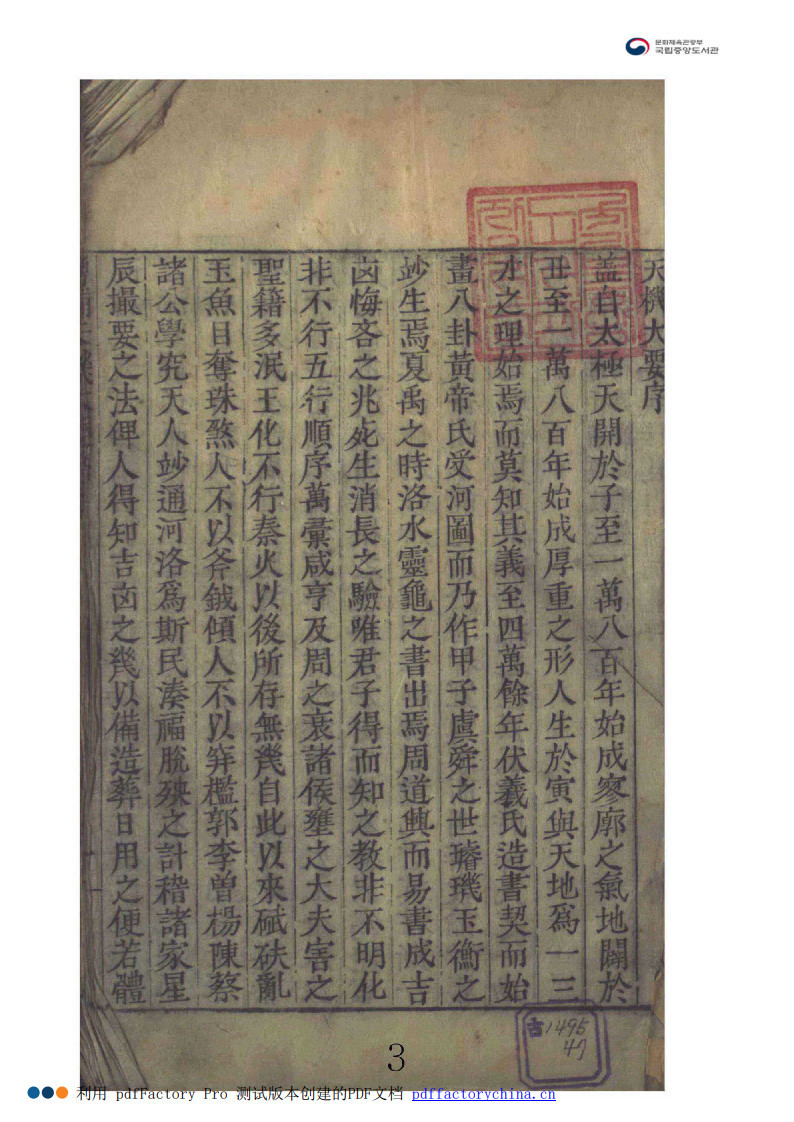 문화체육관광부
국립중앙도서관
天機大要序
盖自太極天開於子至一萬八百年始成寥廓之氣地闢於
丑至一萬八百年始成厚重之形人生於寅與天地爲一三
才之理始焉而莫知其義至四萬餘年伏羲氏造書契而始
畫八卦黃帝氏受河圖而乃作甲子虞舜之世璿璣玉衡之
妙生焉夏禹之時洛水靈龜之書出焉周道興而易書成吉
凶悔吝之兆死生消長之驗唯君子得而知之教非不明化
非不行五行順序萬彙咸亨及周之衰諸侯壅之大夫害之
聖籍多泯王化不行秦火以後所存無幾自此以來碔砆亂
玉魚目奪珠煞人不以斧鉞傾人不以穽檻郭李曽楊陳蔡
諸公學究天人妙通河洛爲斯民湊福脫殃之計稽諸家星
辰撮要之法俾人得知吉凶之幾以備造葬日用之便若體
古1495
47
3
利用 pdfFactory Pro 测试版本创建的PDF文档 pdffactorychina.cn